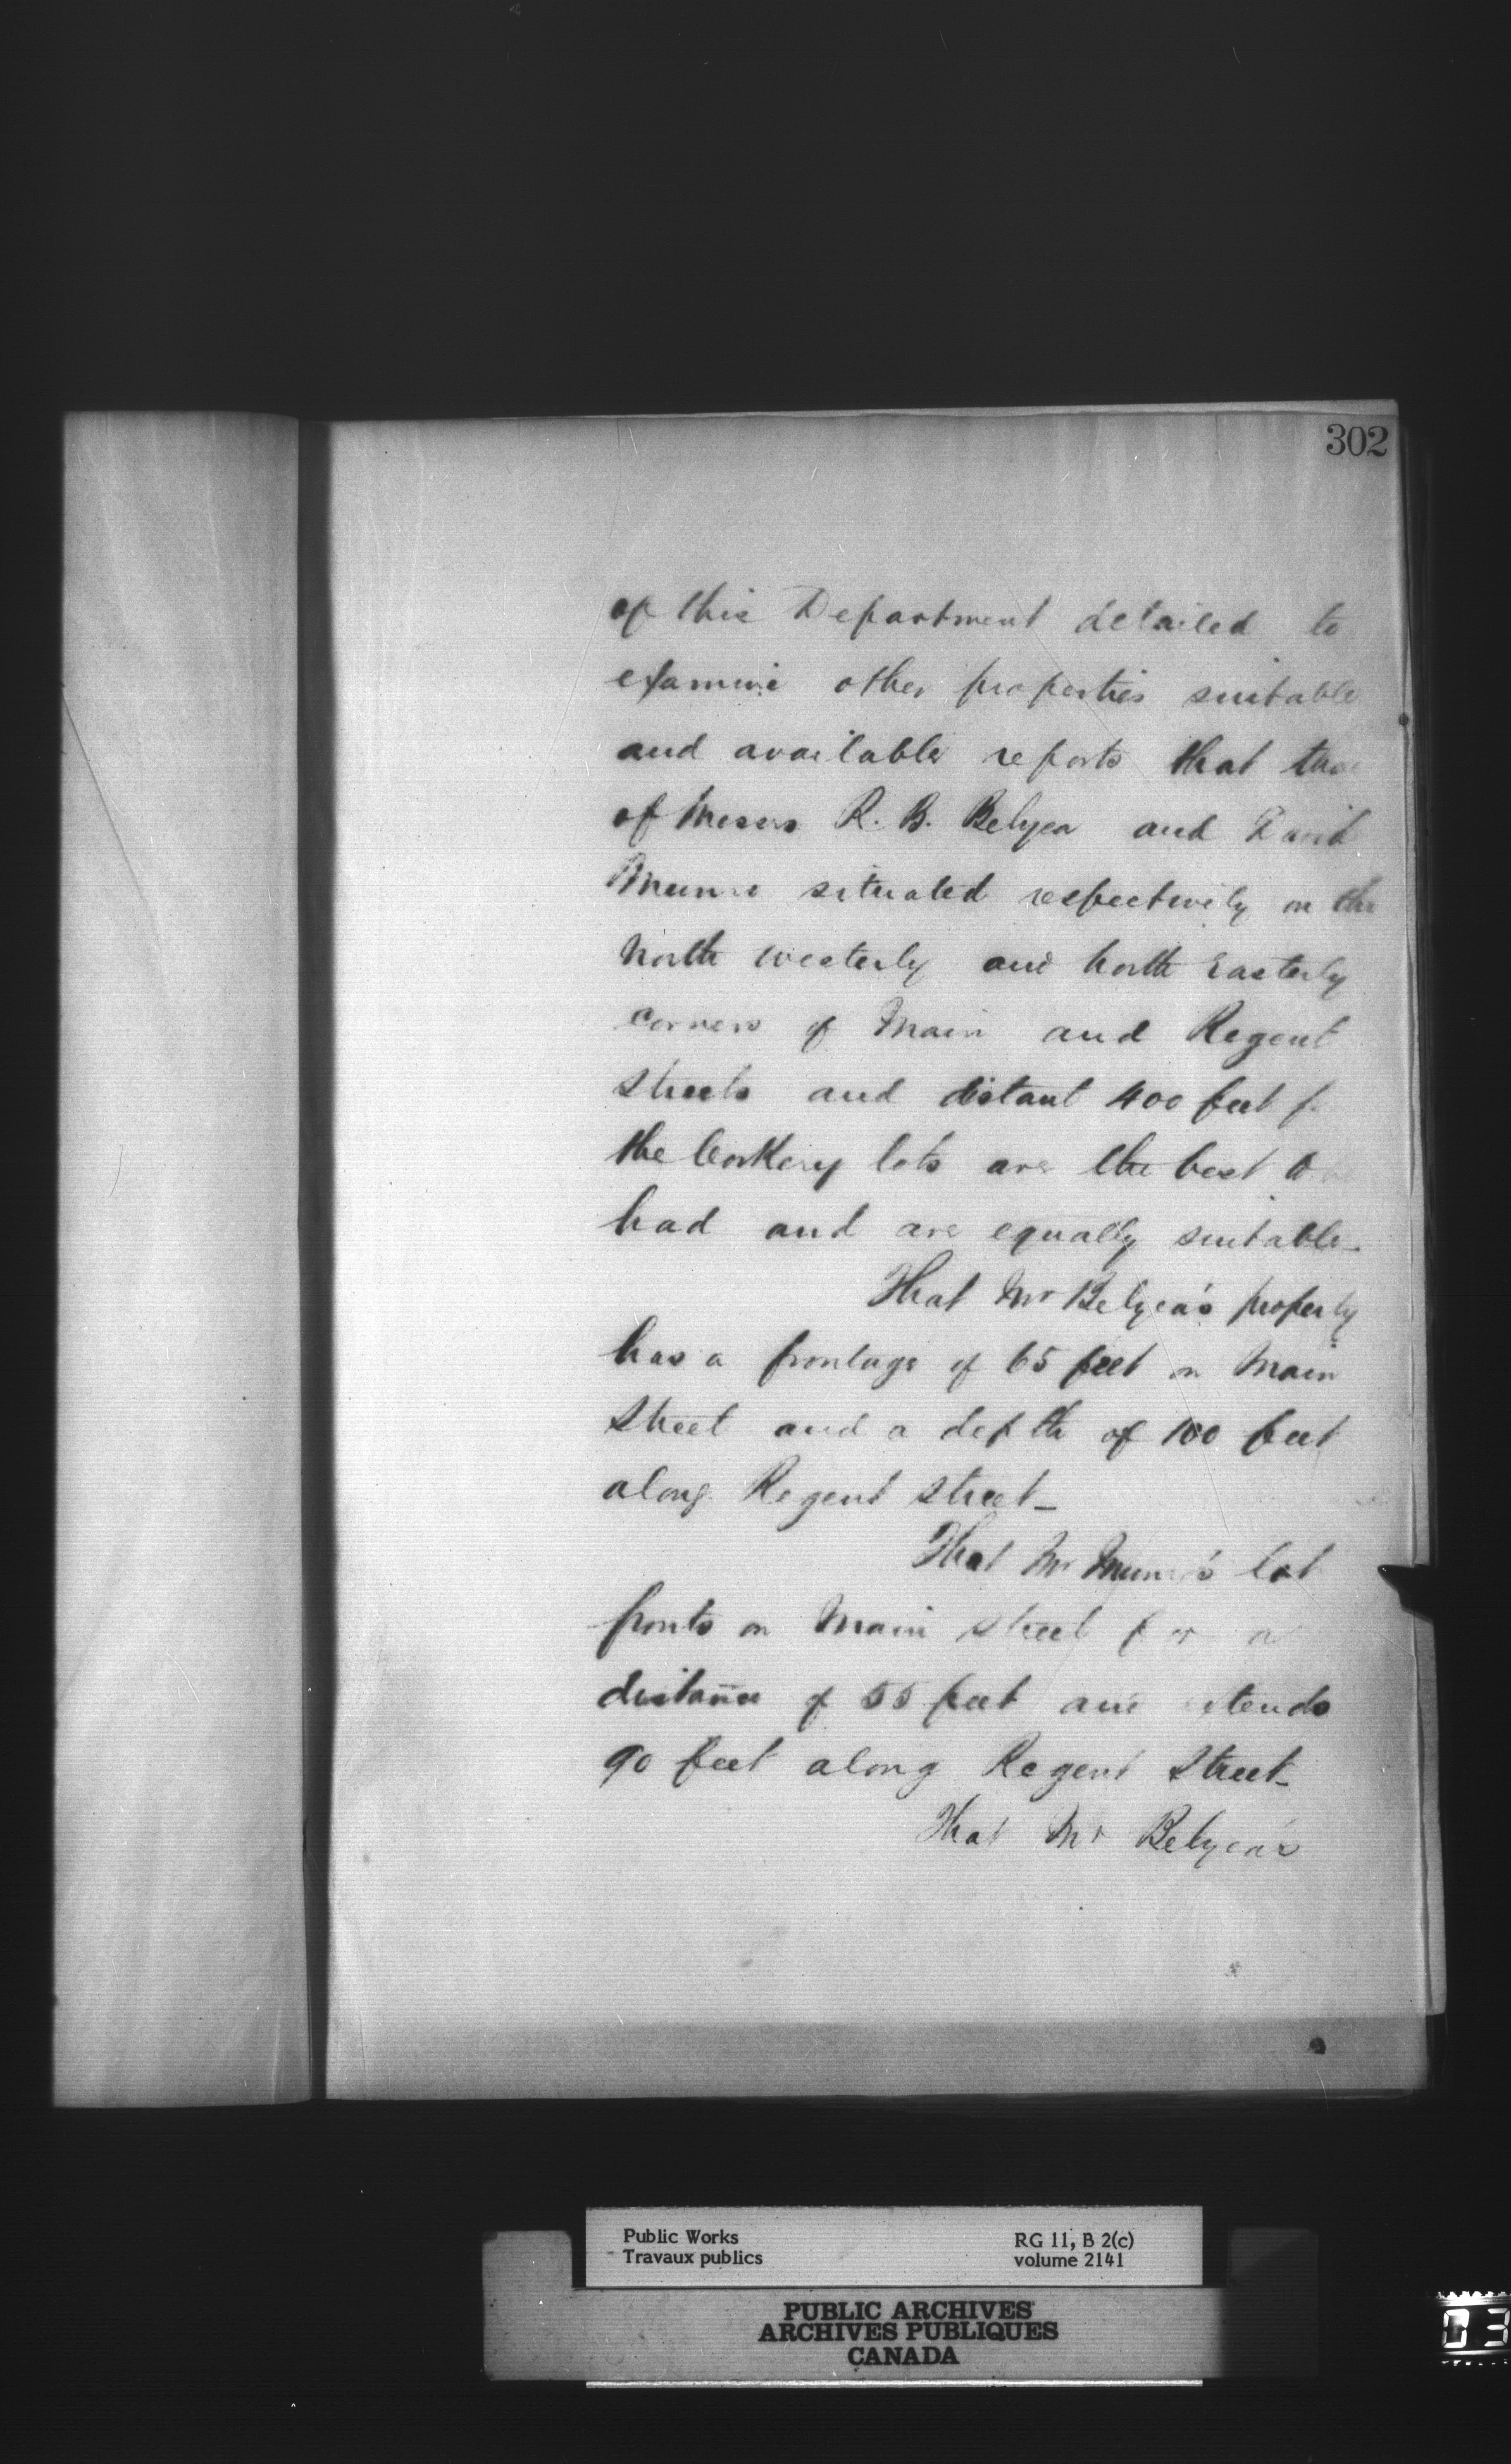 302
of this Department detailed to
examine other properties suitable
and available reports that
of Messrs R. B. Belyea and David
Munro situated respectively on the
North Westerly and North Easterly
corners of Main and Regent
streets and distant 400 feet
the lots are the best to
had and are equally suitable_
That Mr Belyea's property
has a frontage of 65 feet on Main
Street and a depth of 100 feet
along Regent Street_
That Mr Munro's lot
fronts on Main Street for a
distance of 55 feet and extends
90 feet along Regent Street_
That Mr Belyea's
Public Works
Travaux publics
RG 11, B 2(c)
volume 2141
PUBLIC ARCHIVES
ARCHIVES PUBLIQUES
CANADA
03